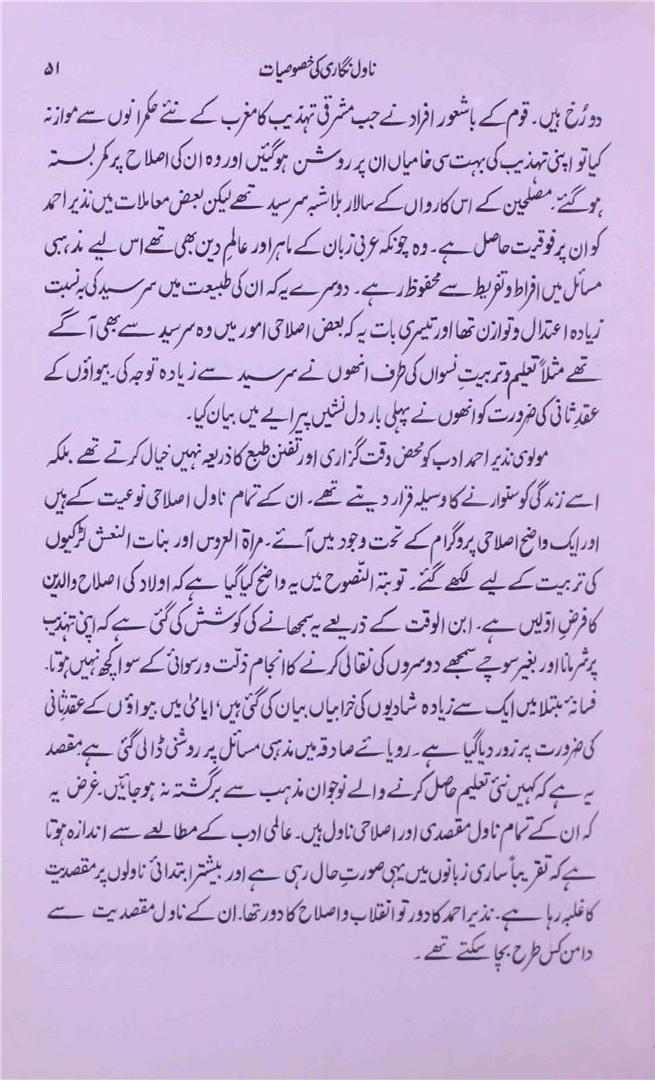 ناول نگاری کی خصوصیات ۵۱
دو رُخ ہیں۔ قوم کے باشعور افراد نے جب مشرقی تہذیب کا مغرب کے نئے حکمرانوں سے موازنہ
کیا تو اپنی تہذیب کی بہت سی خامیاں ان پر روشن ہو گئیں اور وہ ان کی اصلاح پر کمر بستہ
ہو گئے۔ مصلحین کے اس کارواں کے سالار بلاشبہ سرسید تھے لیکن بعض معاملات میں نذیر احمد
کو ان پر فوقیت حاصل ہے۔ وہ چونکہ عربی زبان کے ماہر اور عالمِ دین بھی تھے اس لیے مذہبی
مسائل میں افراط و تفریط سے محفوظ رہے۔ دوسرے یہ کہ ان کی طبیعت میں سرسید کی بہ نسبت
زیادہ اعتدال و توازن تھا اور تیسری بات یہ کہ بعض اصلاحی امور میں وہ سرسید سے بھی آگے
تھے مثلاً تعلیم و تربیتِ نسواں کی طرف انھوں نے سرسید سے زیادہ توجہ کی۔ بیواؤں کے
عقدِ ثانی کی ضرورت کو انھوں نے پہلی بار دل نشیں پیرایے میں بیان کیا۔
مولوی نذیر احمد ادب کو محض وقت گزاری اور تفننِ طبع کا ذریعہ نہیں خیال کرتے تھے بلکہ
اسے زندگی کو سنوارنے کا وسیلہ قرار دیتے تھے۔ ان کے تمام ناول اصلاحی نوعیت کے ہیں
اور ایک واضح اصلاحی پروگرام کے تحت وجود میں آئے۔ مراۃ العروس اور بنات النعش لڑکیوں
کی تربیت کے لیے لکھے گئے۔ توبتہ النّصوح میں یہ واضح کیا گیا ہے کہ اولاد کی اصلاح والدین
کا فرضِ اوّلیں ہے۔ ابن الوقت کے ذریعے یہ سمجھانے کی کوشش کی گئی ہے کہ اپنی تہذیب
پر شرمانا اور بغیر سوچے سمجھے دوسروں کی نقالی کرنے کا انجام ذلّت و رسوائی کے سوا کچھ نہیں ہوتا۔
فسانۂ مبتلا میں ایک سے زیادہ شادیوں کی خرابیاں بیان کی گئی ہیں، ایامیٰ میں بیواؤں کے عقدِ ثانی
کی ضرورت پر زور دیا گیا ہے۔ رویائے صادقہ میں مذہبی مسائل پر روشنی ڈالی گئی ہے مقصد
یہ ہے کہ کہیں نئی تعلیم حاصل کرنے والے نوجوان مذہب سے برگشتہ نہ ہو جائیں۔ غرض یہ
کہ ان کے تمام ناول مقصدی اور اصلاحی ناول ہیں۔ عالمی ادب کے مطالعے سے اندازہ ہوتا
ہے کہ تقریباً ساری زبانوں میں یہی صورتِ حال رہی ہے اور بیشتر ابتدائی ناولوں پر مقصدیت
کا غلبہ رہا ہے۔ نذیر احمد کا دور تو انقلاب و اصلاح کا دور تھا۔ ان کے ناول مقصدیت سے
دامن کس طرح بچا سکتے تھے۔